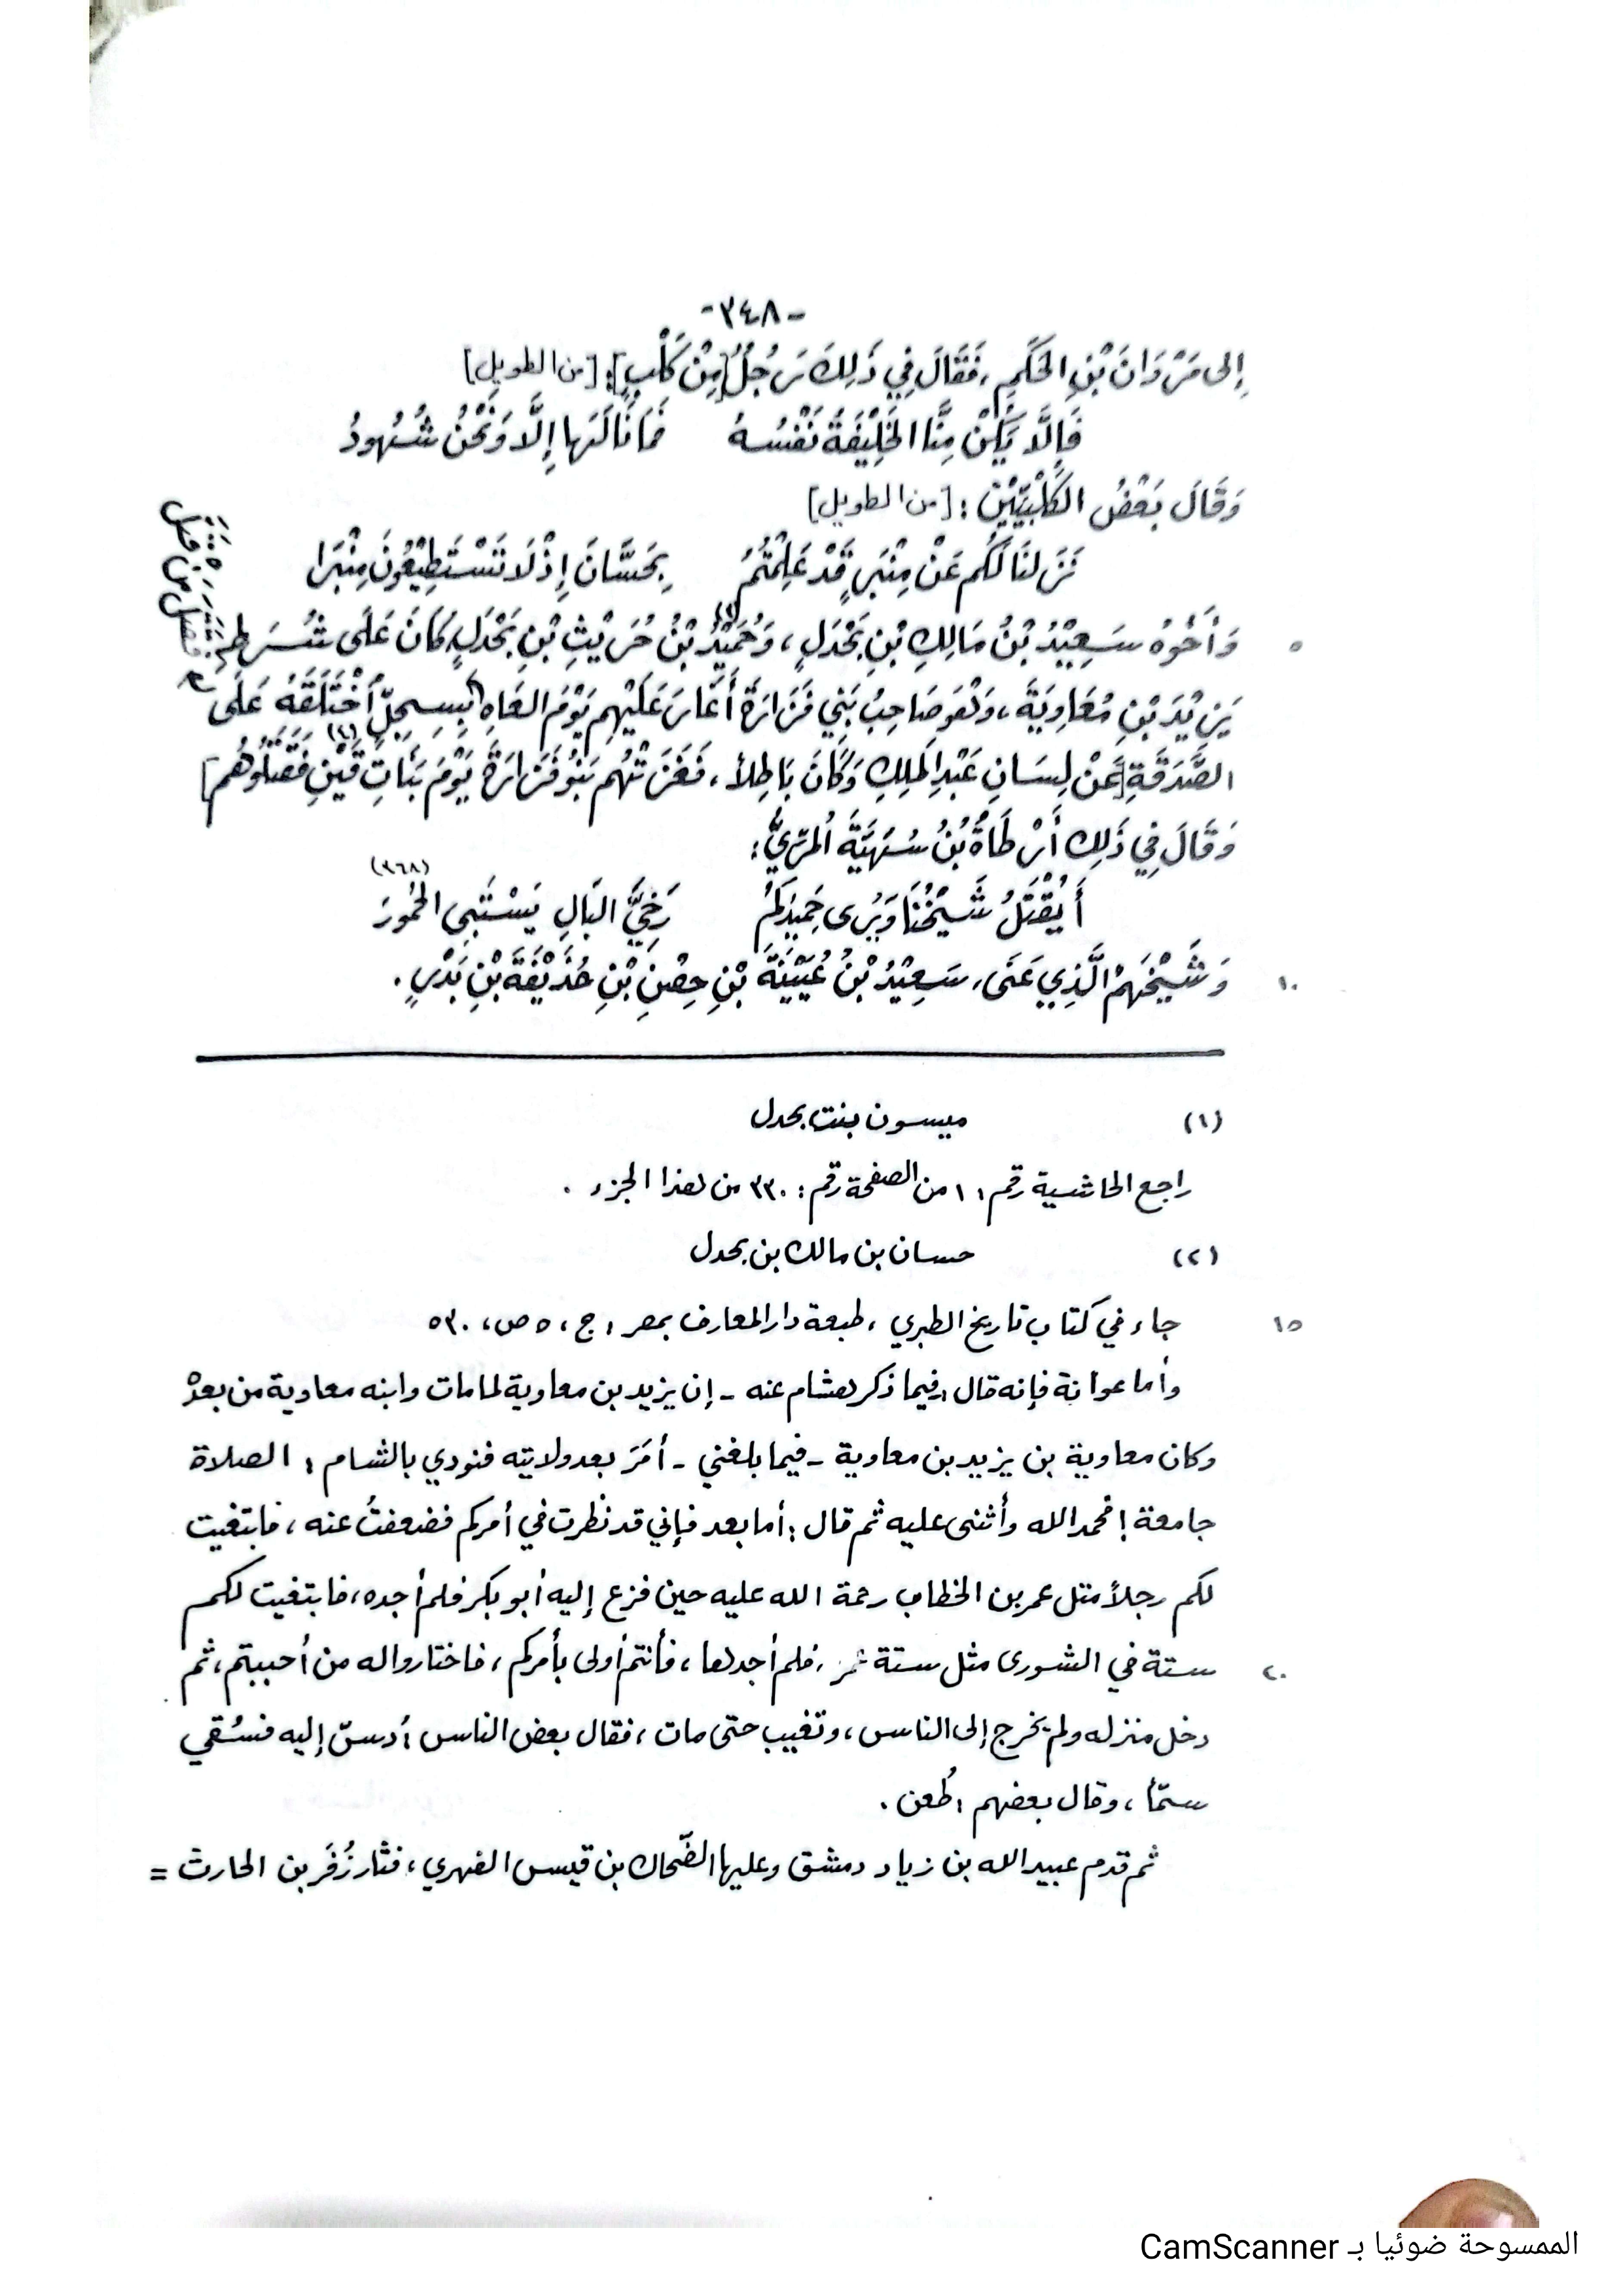 -٣٤٨-
إِلى مَرْوَانَ بْنِ الحَكَمِ، فَقَالَ فِي ذَلِكَ رَجُلٌ [مِنْ كَلْبٍ]: [من الطويل]
فَإِلَّا يَكُنْ مِنَّا الخَلِيْفَةُ نَفْسُهُ فَمَا نَالَهَا إِلَّا وَنَحْنُ شُهُودُ
وَقَالَ بَعْضُ الكَلْبِيِّيْنَ: [من الطويل]
نَزَلنَا لَكُم عَنْ مِنْبَرٍ قَدْ عَلِمْتُمُ بِحَسَّانَ إِذْ لَا تَسْتَطِيْعُونَ مِنْبَرَا
٥ وَأَخُوهُ سَعِيْدُ بْنُ مَالِكِ بْنِ بَحْدَلٍ، وَحُمَيْدُ بْنُ حُرَيْثِ بْنِ بَحْدَلٍ كَانَ عَلَى شُرَطِ
يَزِيْدَ بْنِ مُعَاوِيَةَ، وَهُوَ صَاحِبُ بَنِي فَزَارَةَ أَغَارَ عَلَيْهِم يَوْمَ العَاهِ بِسِجِلٍّ اخْتَلَقَهُ عَلَى
الصَّدَقَةِ [عَنْ لِسَانِ عَبْدِ المَلِكِ وَكَانَ بَاطِلاً، فَغَزَتْهُم بَنُو فَزَارَةَ يَوْمَ بَنَاتِ قَيْنٍ فَقَتَلُوهُم]
وَقَالَ فِي ذَلِكَ أَرْطَاةُ بْنُ سُهَيَّةَ المُرِّيُّ:
(٣٦٨)
أَيُقْتَلُ شَيْخُنَا وَيُرى حَمِيْدَكُمُ رَخِيَّ البَالِ يَسْتَبِى الخُمُورَ
١٠ وَشَيْخَهُمْ الَّذِي عَنَى، سَعِيْدُ بْنُ عُيَيْنَةَ بْنِ حِصْنِ بْنِ حُذَيْفَةَ بْنِ بَدْرٍ.
(١) ميسون بنت بحدل
راجع الحاشية رقم: ١ من الصفحة رقم: ٣٣٠ من هذا الجزء.
(٢) حسان بن مالك بن بحدل
١٥ جاء في كتاب تاريخ الطبري، طبعة دار المعارف بمصر: ج، ٥ ص، ٥٣٠
وأما عوانة فإنه قال، فيما ذكر هشام عنه - إن يزيد بن معاوية لما مات وابنه معاوية من بعدهْ
وكان معاوية بن يزيد بن معاوية - فيما بلغني - أمَرَ بعد ولايته فنودي بالشام: الصلاة
جامعة! فحمد الله وأثنى عليه ثم قال: أما بعد فإني قد نظرت في أمركم فضعفتُ عنه، فابتغيت
لكم رجلاً مثل عمر بن الخطاب رحمة الله عليه حين فزع إليه أبو بكر فلم أجده، فابتغيت لكم
٢٠ ستة في الشورى مثل ستة عمر، فلم أجدها، فأنتم أولى بأمركم، فاختاروا له من أحببتم، ثم
دخل منزله ولم يخرج إلى الناس، وتغيب حتى مات، فقال بعض الناس: دسّ إليه فسُقي
سمّاً، وقال بعضهم: طُعن.
ثم قدم عبيد الله بن زياد دمشق وعليها الضّحاك بن قيس الفهري، فثار زُفَر بن الحارث =
الممسوحة ضوئيا بـ CamScanner